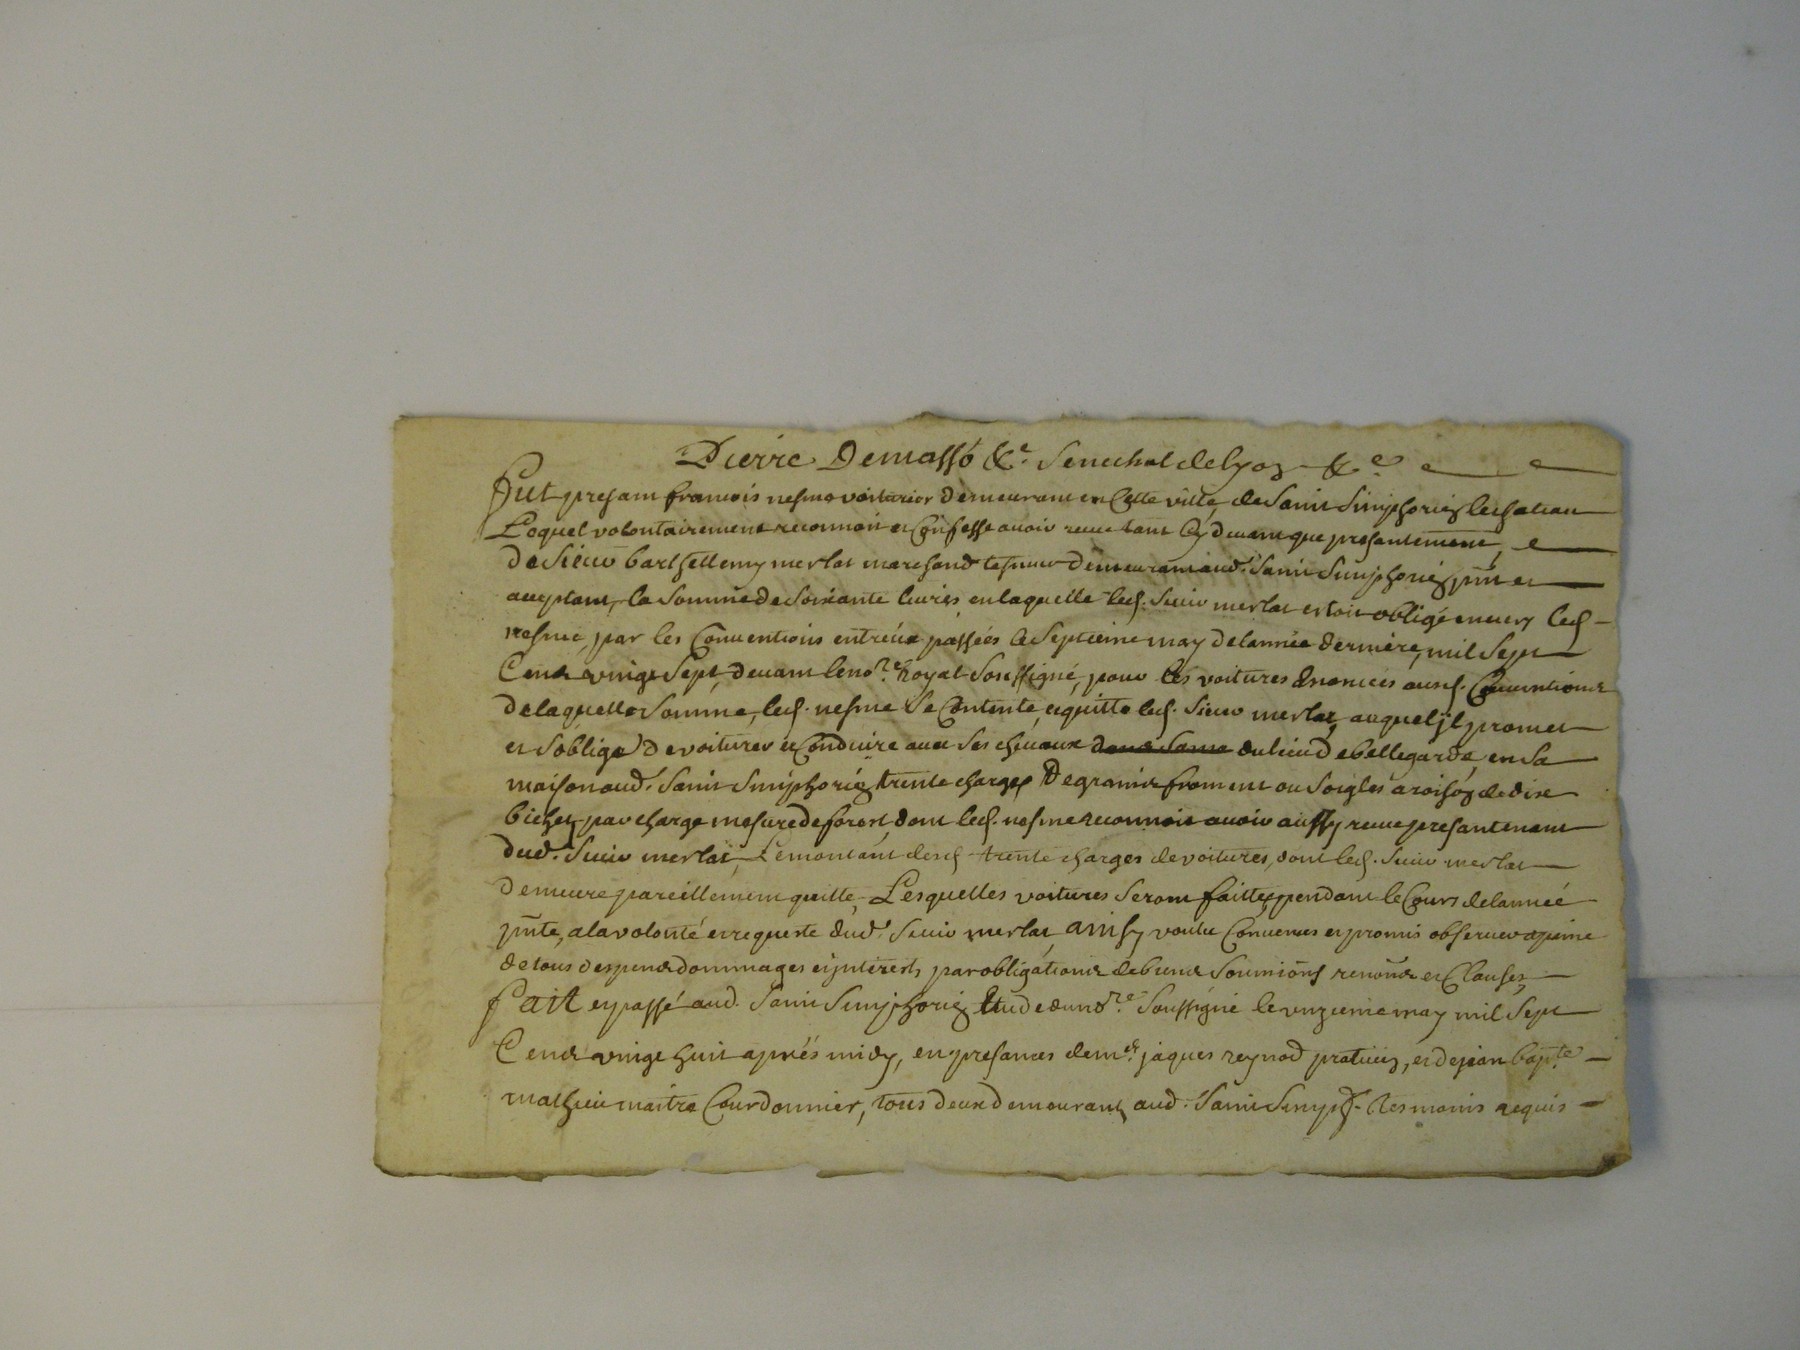 Pierre Demassó &c. Senechal de Lyon &c.
Fut presant francois nesme voiturier demeurant en Cette ville de Saint Simphorien lechateau
Lequel volontairement reconnoit et Confesse avoir receu tant Cy devant que presantement,
De Sieur barthellemy merlat marchand demeurant aud. Saint Simphorien pñt et
aceptant, la Somme de Soixante livres, en laquelle led. Sieur merlat estoit obligé envers led.
nesme, par les Conventions entréux passées le Septieme may de lannée derniere, mil Sept
Cent vingt Sept, devant le nore. Royal Soussigné, pour les voitures Enoncées ausd. Conventions
De laquelle Somme, led. nesme Se Contente, et quitte led. Sieur merlat, auquel jl promet
et Soblige De voiturer et Conduire avec Ses chevaux du lieu de bellegarde, en Sa
maison aud. Saint Simphorien trente charges De grains froment ou Soigles a raison de dix
bichets par charge mesure de forest, dont led. nesme reconnoit avoir aussy receu presantement
dud. Sieur merlat, Le montant desd. trente charges de voitures, dont led. Sieur merlat
Demeure pareillement quitte, Lesquelles voitures Seront faittes pendant le Cours de lannéé
pñte, a la volonté et requeste dud. Sieur merlat, ainsy voulu Convenus et promis observer a peine
de tous despens dommages et jnterests par obligations de biens Soumions renons et Clauses,
Fait et passé aud. Saint Simphorien Etude du nore. Soussigné le unzieme may mil Sept
Cent vingt huit aprés midy, en presances de me. jaques reynod praticien, et de jean bapte.
mathieu maitre Courdonnier, tous deux demeurants aud. Saint Simph. tesmoins requis